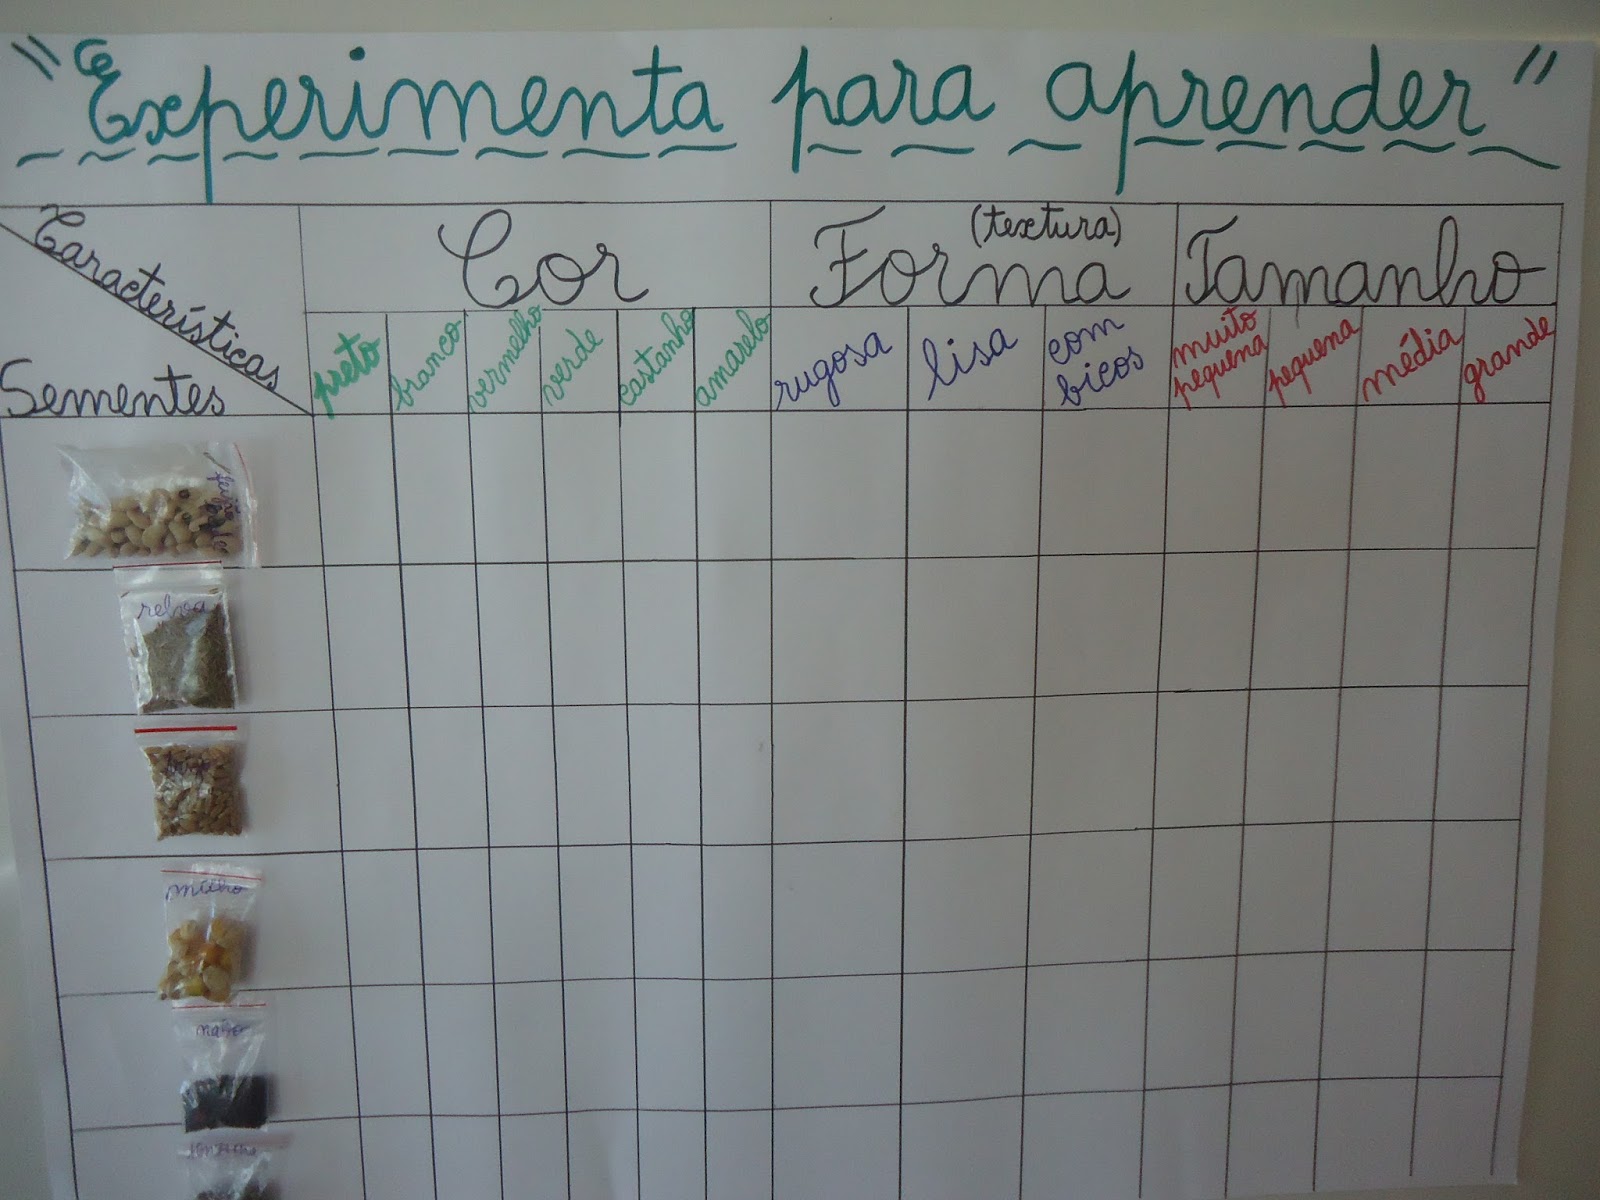 "Experimenta para aprender"
Características
Cor
Forma
(textura)
Tamanho
Sementes
preto
branco
vermelho
verde
castanho
amarelo
rugosa
lisa
com
bicos
muito
pequena
pequena
média
grande
relva
trigo
milho